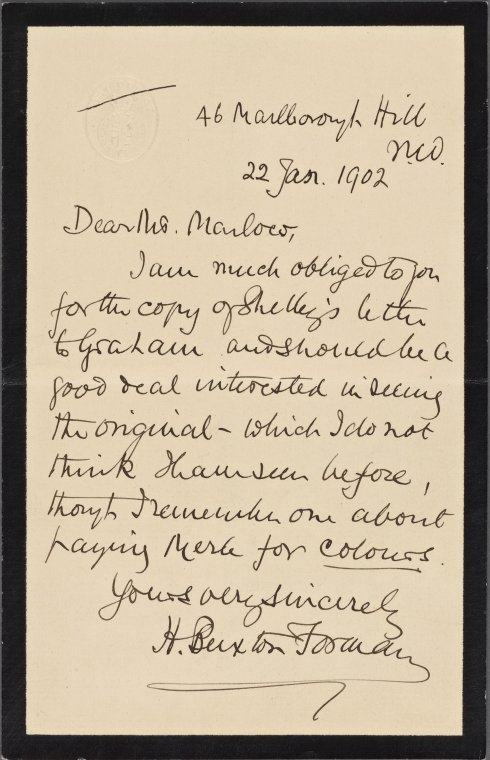 46 Marlborough Hill
N.W.
22 Jan. 1902
Dear Mr. Marlow,
I am much obliged to you
for the copy of Shelley's letter
to Graham and should be a
good deal interested in seeing
the original – which I do not
think I have seen before,
though I remember one about
paying Merle for colours.
Yours very sincerely
H. Buxton Forman